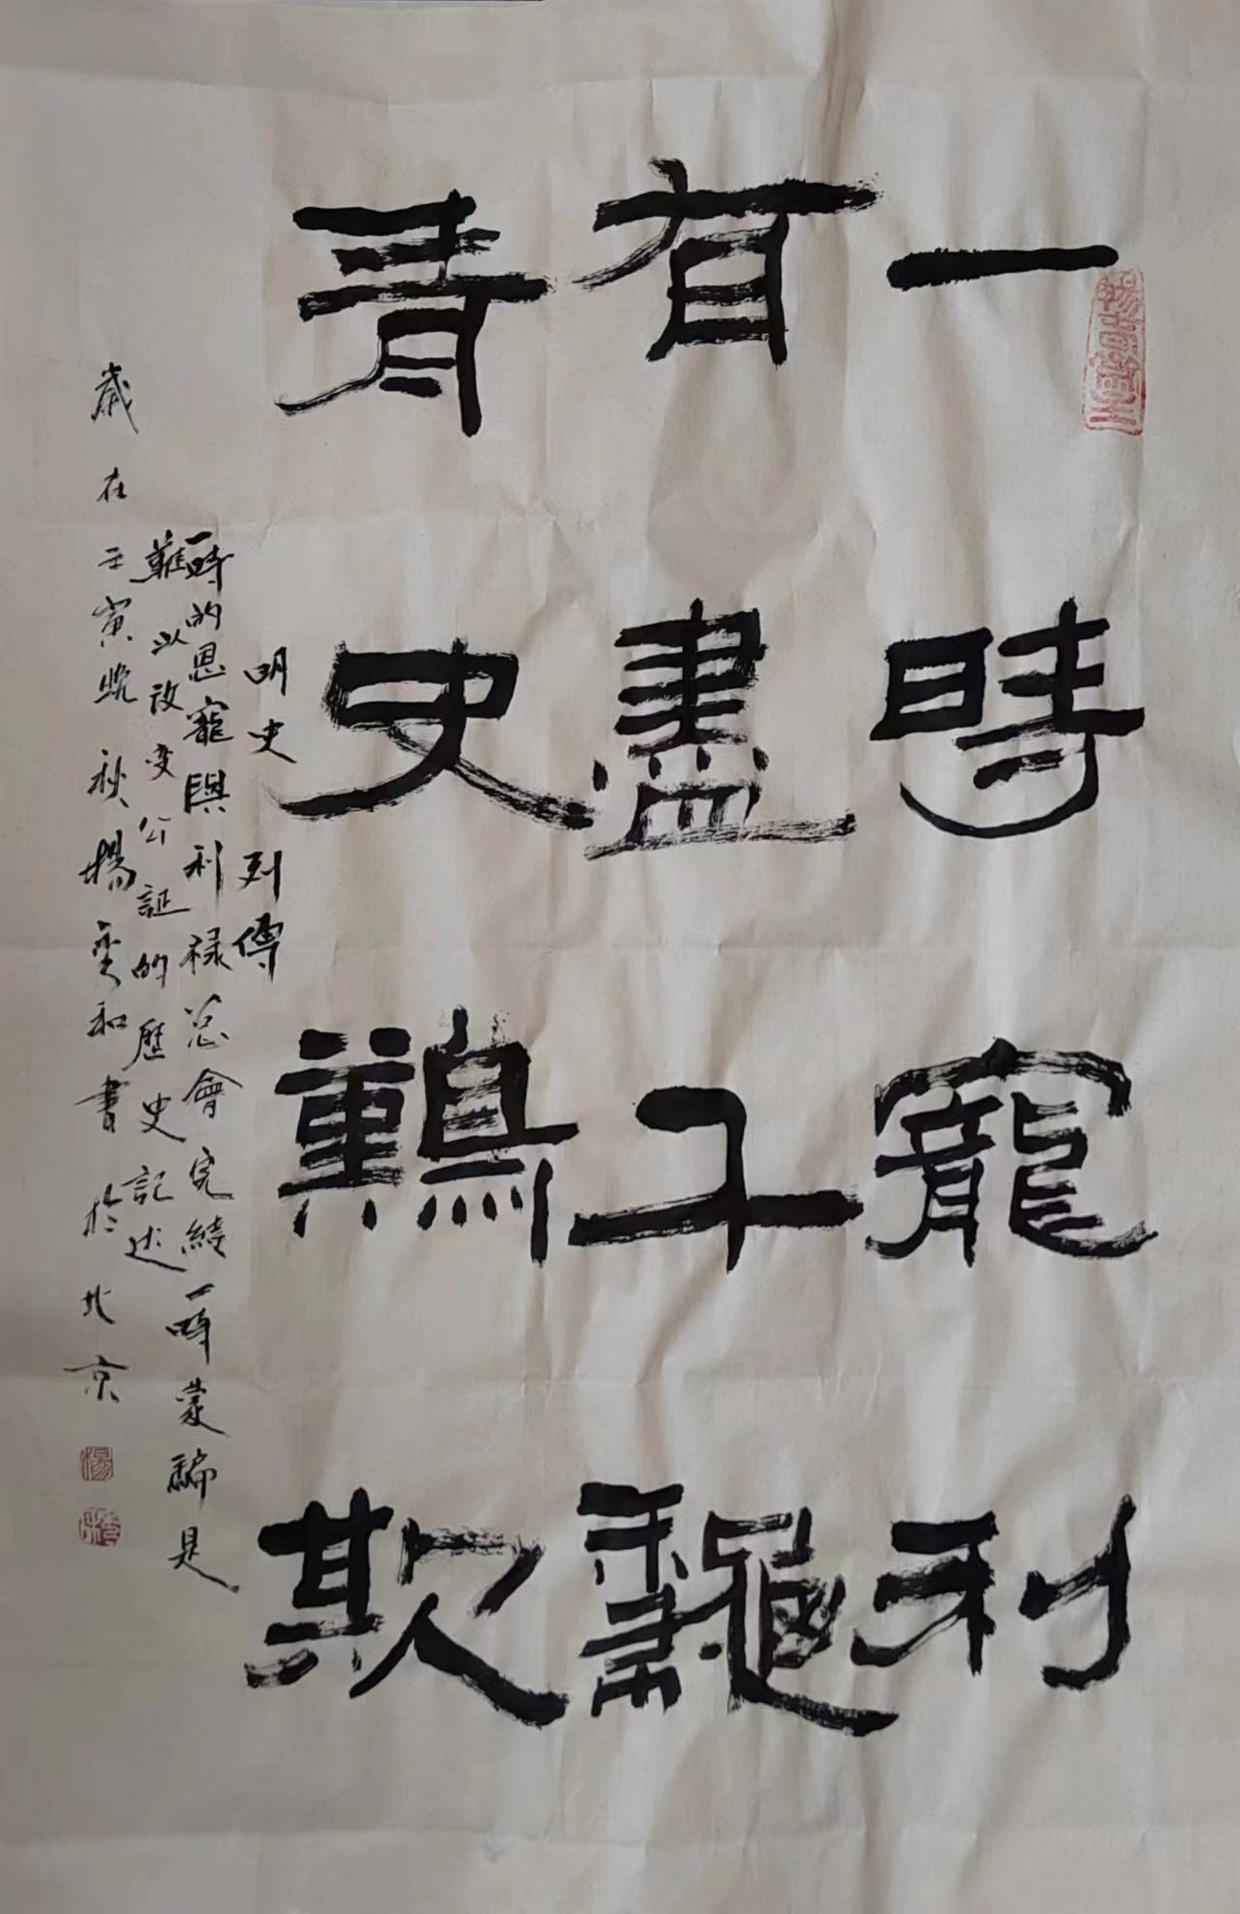 一時寵利
有盡千龝
青史難欺
明史 列傳
一時的恩寵與利禄总會完結一時蒙騙是
難以改變公証的歷史記述
歲在壬寅晚秋楊和書於北京
楊